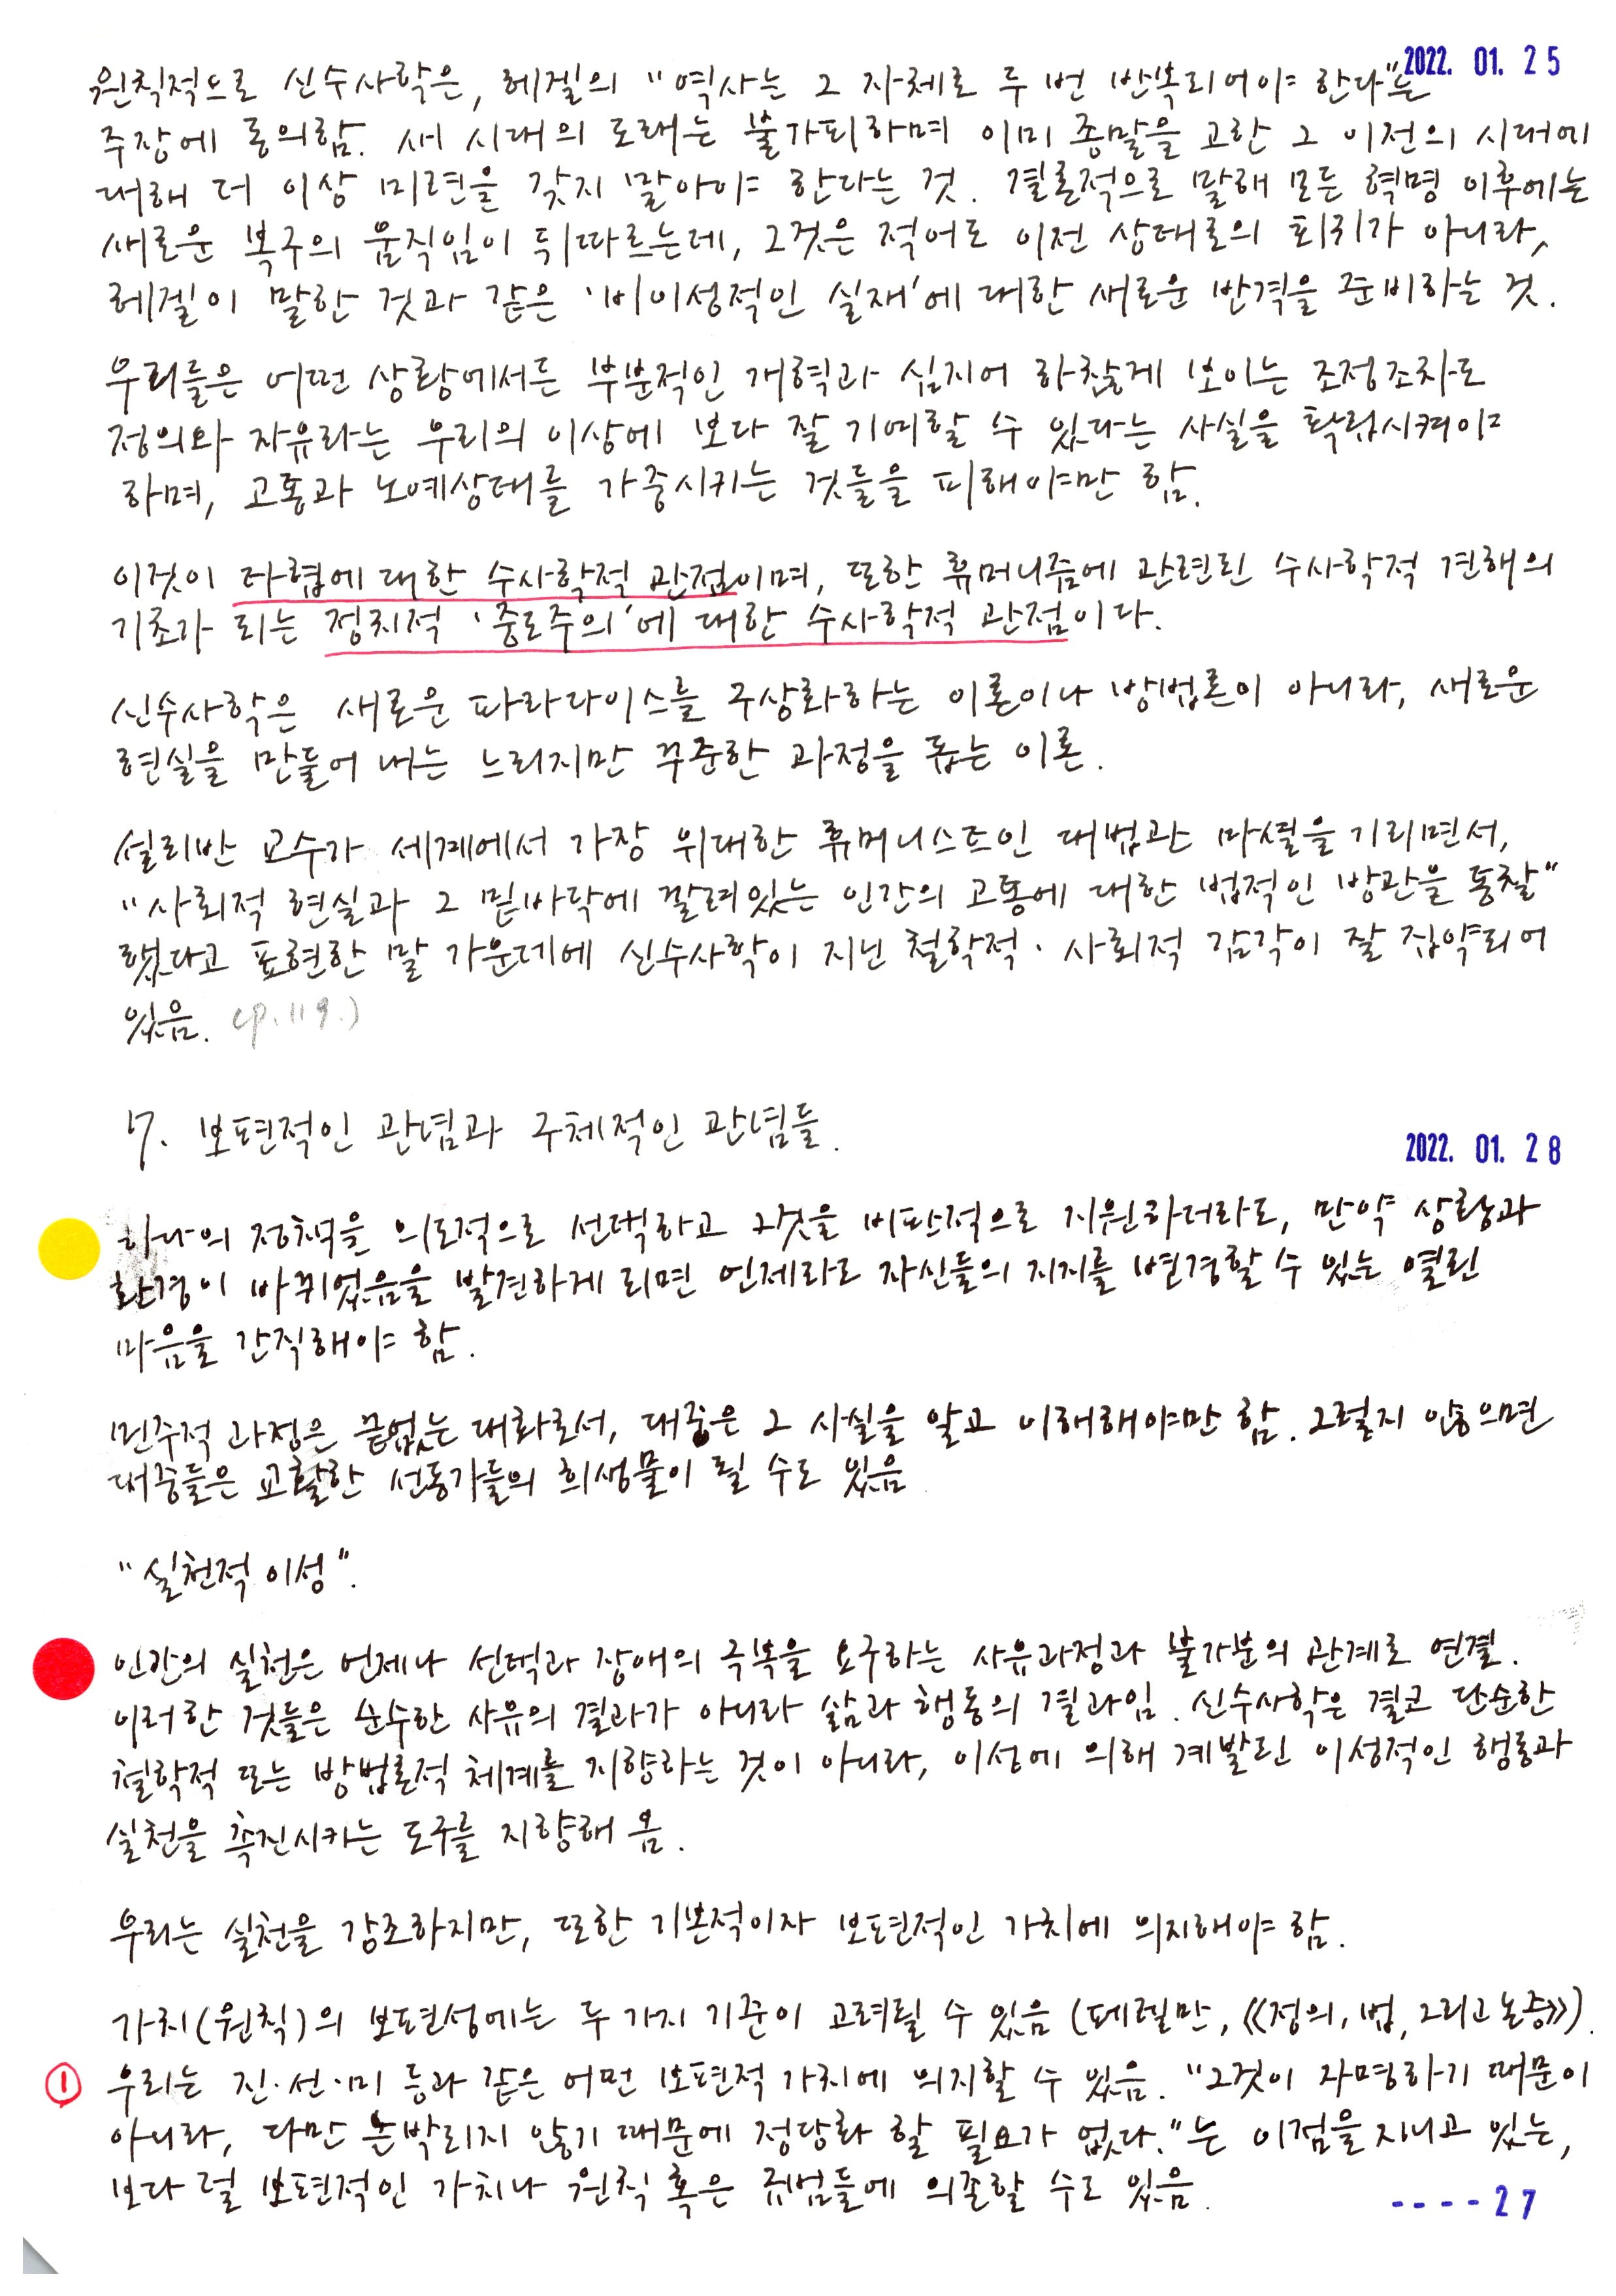 2022. 01. 25
원칙적으로 신수사학은, 헤겔의 "역사는 그 자체로 두 번 반복되어야 한다"는
주장에 동의함. 새 시대의 도래는 불가피하며 이미 종말을 고한 그 이전의 시대에
대해 더 이상 미련을 갖지 말아야 한다는 것. 결론적으로 말해 모든 혁명 이후에는
새로운 복구의 움직임이 뒤따르는데, 그것은 적어도 이전 상태로의 회귀가 아니라,
헤겔이 말한 것과 같은 '비이성적인 실재'에 대한 새로운 반격을 준비하는 것.
우리들은 어떤 상황에서든 부분적인 개혁과 심지어 하찮게 보이는 조정조차도
정의와 자유라는 우리의 이상에 보다 잘 기여할 수 있다는 사실을 확립시켜야
하며, 고통과 노예상태를 가중시키는 것들을 피해야만 함.
이것이 타협에 대한 수사학적 관점이며, 또한 휴머니즘에 관련된 수사학적 견해의
기초가 되는 정치적 '중도주의'에 대한 수사학적 관점이다.
신수사학은 새로운 파라다이스를 구상화하는 이론이나 방법론이 아니라, 새로운
현실을 만들어 내는 느리지만 꾸준한 과정을 돕는 이론.
설리반 교수가 세계에서 가장 위대한 휴머니스트인 대법관 마셜을 기리면서,
"사회적 현실과 그 밑바닥에 깔려있는 인간의 고통에 대한 법적인 방관을 통찰"
했다고 표현한 말 가운데에 신수사학이 지닌 철학적·사회적 감각이 잘 집약되어
있음. (p.119.)
7. 보편적인 관념과 구체적인 관념들.
2022. 01. 28
하나의 정책을 의도적으로 선택하고 그것을 비판적으로 지원하더라도, 만약 상황과
환경이 바뀌었음을 발견하게 되면 언제라도 자신들의 지지를 변경할 수 있는 열린
마음을 간직해야 함.
민주적 과정은 끝없는 대화로서, 대중은 그 사실을 알고 이해해야만 함. 그렇지 않으면
대중들은 교활한 선동가들의 희생물이 될 수도 있음.
"실천적 이성".
인간의 실천은 언제나 선택과 장애의 극복을 요구하는 사유과정과 불가분의 관계로 연결.
이러한 것들은 순수한 사유의 결과가 아니라 삶과 행동의 결과임. 신수사학은 결코 단순한
철학적 또는 방법론적 체계를 지향하는 것이 아니라, 이성에 의해 계발된 이성적인 행동과
실천을 촉진시키는 도구를 지향해 옴.
우리는 실천을 강조하지만, 또한 기본적이자 보편적인 가치에 의지해야 함.
가치(원칙)의 보편성에는 두 가지 기준이 고려될 수 있음 (페렐만, 《정의, 법, 그리고 논증》).
① 우리는 진·선·미 등과 같은 어떤 보편적 가치에 의지할 수 있음. "그것이 자명하기 때문이
아니라, 다만 논박되지 않기 때문에 정당화 할 필요가 없다."는 이점을 지니고 있는,
보다 덜 보편적인 가치나 원칙 혹은 규범들에 의존할 수도 있음.
----27